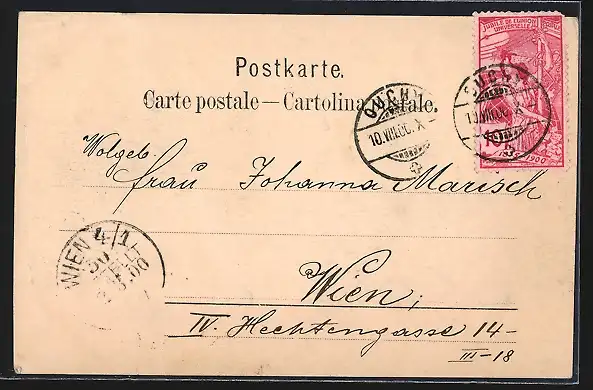 JUBILÉ DE L'UNION
UNIVERSELLE
Postkarte.
Carte postale — Cartolina postale.
OUCHY
10.VII.00.X
OUCHY
10.VII.00.X
10
1900
Wolgeb.
Frau Johanna Marisch
WIEN 4/1
Wien,
IV. Hechtengasse 14-
III-18